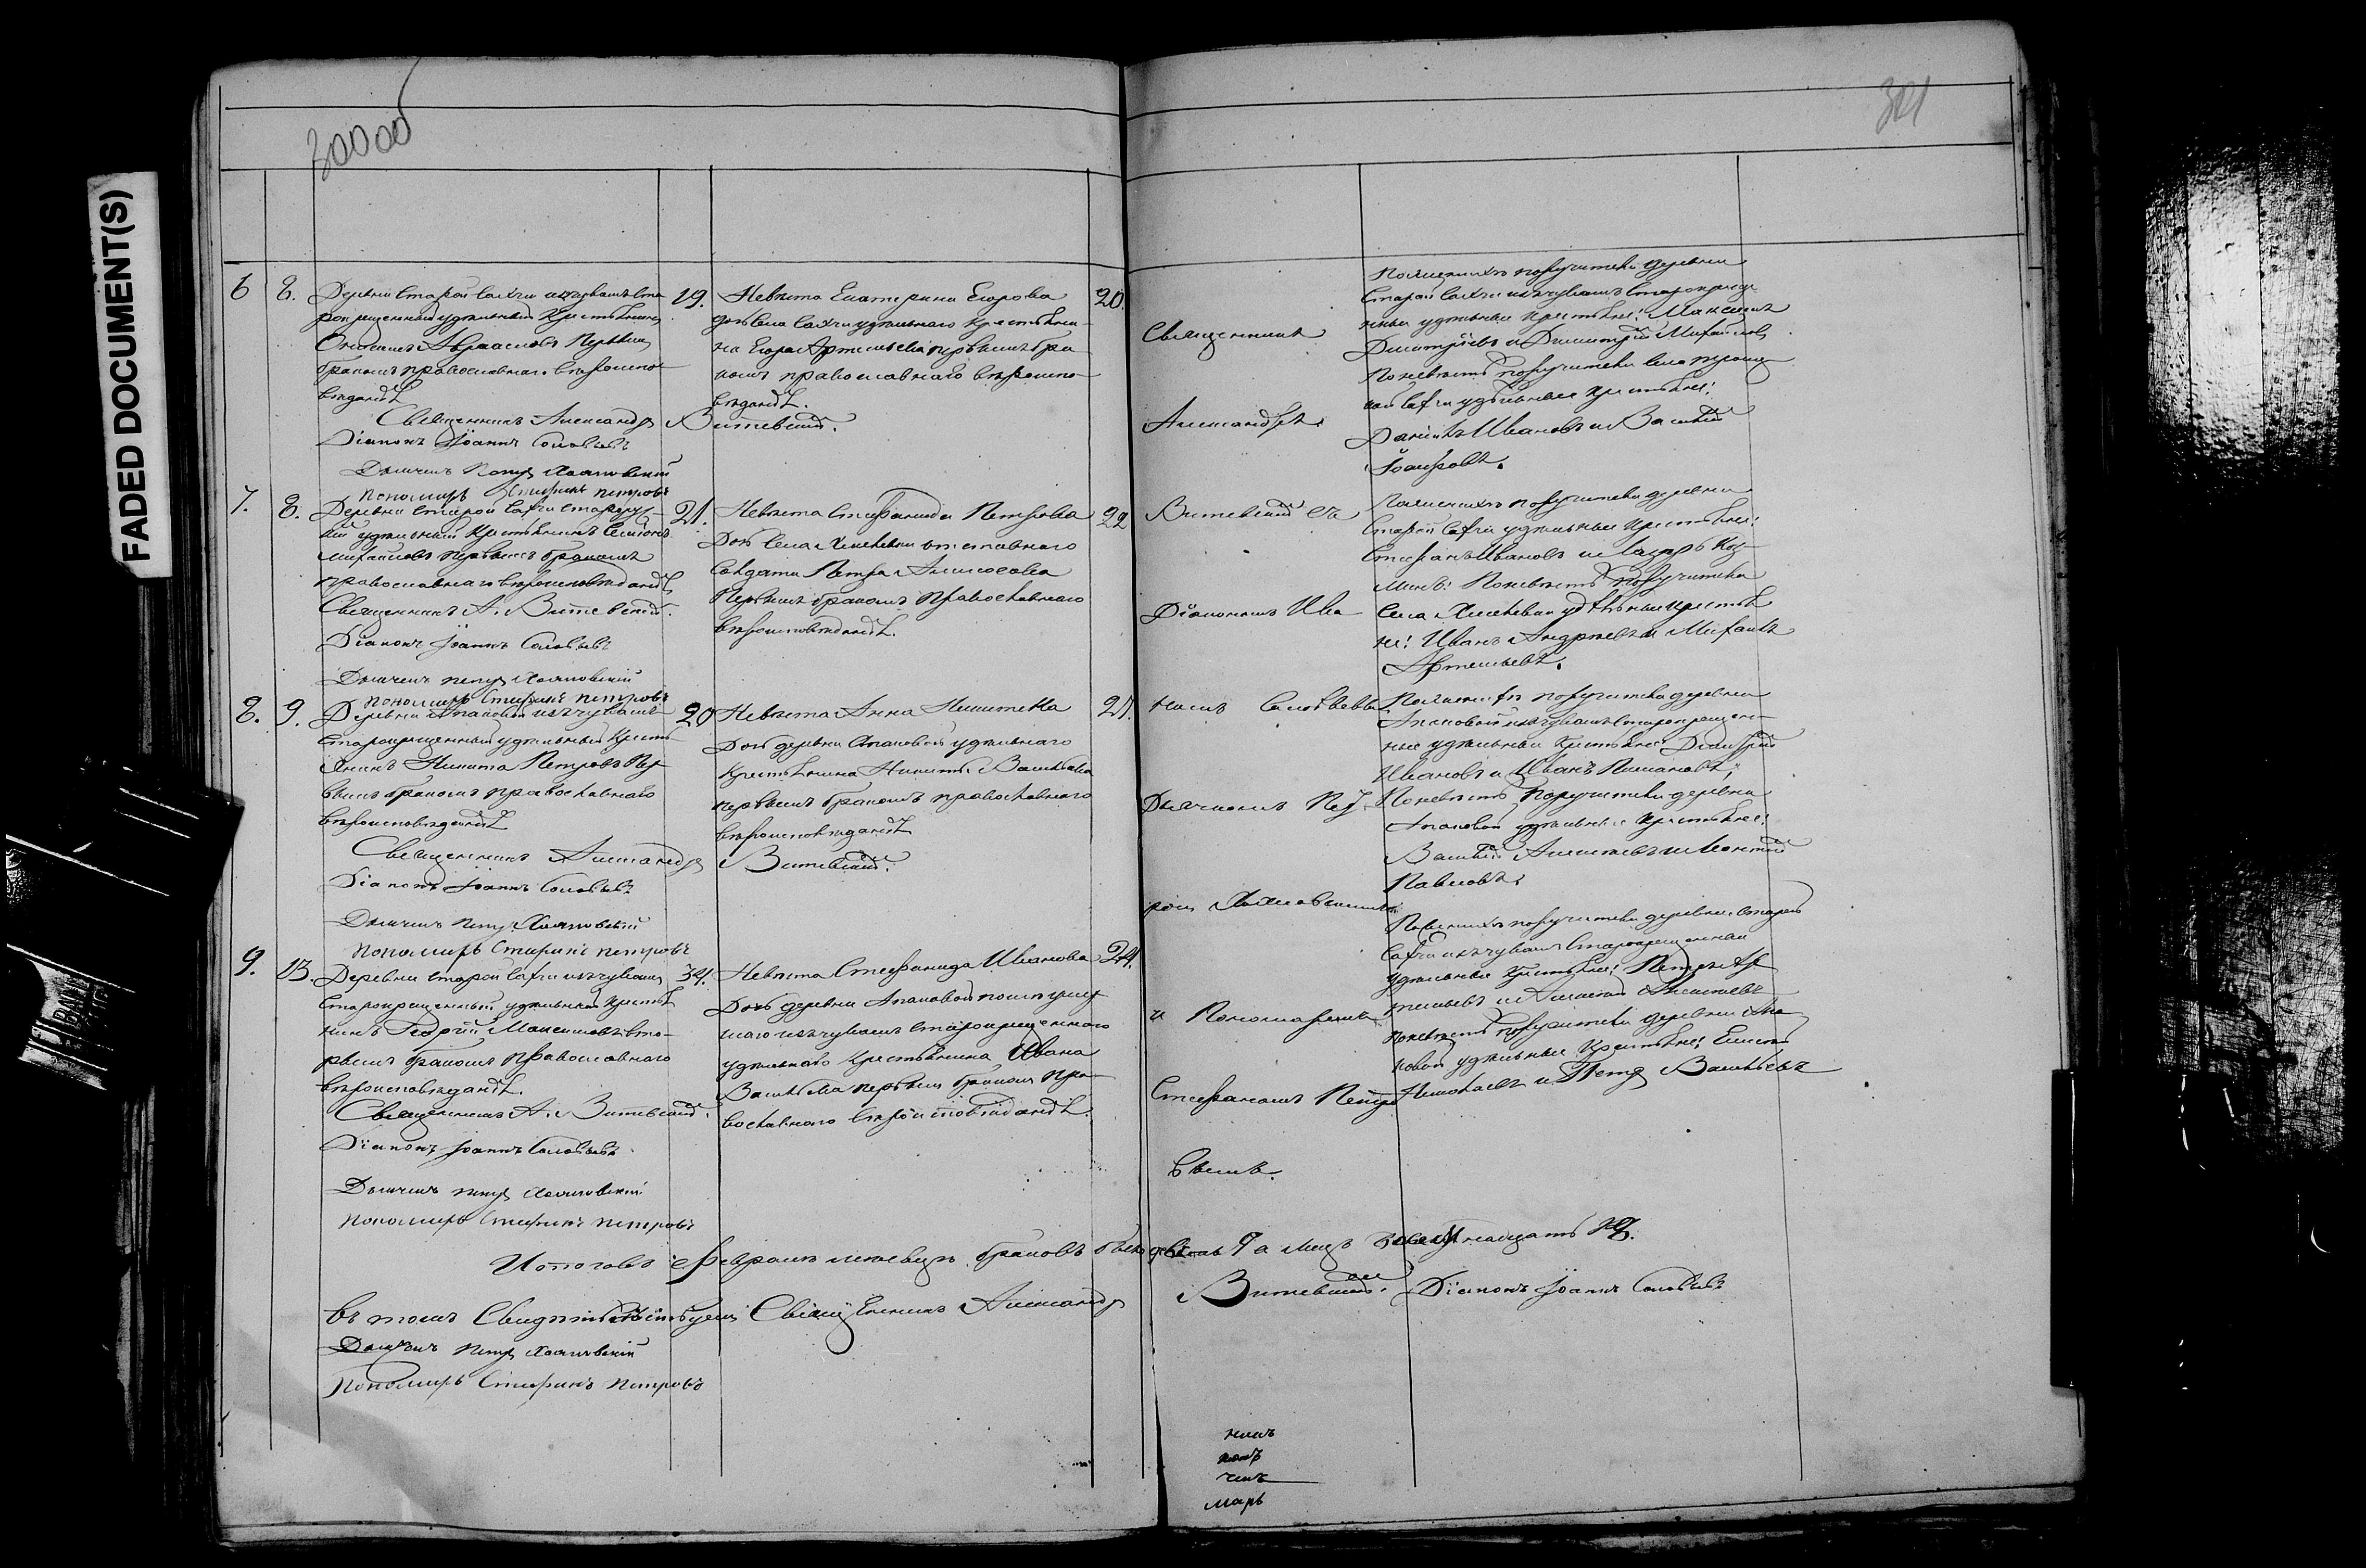 FADED DOCUMENT(S)
300 об
301
6 8. Деревни Старой Сахчи изъ чувашъ Ста
рокрещенный удѣльный Крестьянинъ
Авраамовъ Первымъ
бракомъ православнаго вѣроиспо-
вѣданія
Священникъ Александръ Витевскій.
Діаконъ Іоаннъ Соловьевъ
Дьячекъ Петръ
Пономарь Стефанъ Петровъ
19. Невѣста Екатерина Егорова
дочь Села Сахчи удѣльнаго крестьяни-
на Егора Артемьева первымъ бра
комъ православнаго вѣроиспо-
вѣданія.
20.
Священникъ
Александръ
По женихѣ поручители деревни
Старой Сахчи изъ чувашъ Старокреще
нные удѣльные крестьяне: Максимъ
Дмитріевъ и Димитрій Михайловъ
По невѣстѣ поручители села
Сахчи удѣльные крестьяне:
Данилъ Ивановъ и Василій
7. 8. Деревни Старой Сахчи
удѣльный Крестьянинъ Семіонъ
Михайловъ первымъ бракомъ
православнаго вѣроисповѣданія
Священникъ А. Витевскій.
Діаконъ Іоаннъ Соловьевъ
Дьячекъ Петръ
Пономарь Стефанъ Петровъ
21. Невѣста Стефанида Петрова
Дочь Села отставнаго
Солдата Петра
Первымъ бракомъ Православнаго
вѣроисповѣданія.
22
Витевскій съ
Діакономъ Іва
По женихѣ поручители деревни
Старой Сахчи удѣльные крестьяне:
Стефанъ Ивановъ и Лазарь Коз
минъ: По невѣстѣ поручители
Села удѣльные крестья
не: Иванъ Андреевъ и Михаилъ
Артемьевъ.
8. 9. Деревни Апаковой изъ чувашъ
Старокрещенный удѣльный Кресть
янинъ Никита Петровъ Пер
вымъ бракомъ православнаго
вѣроисповѣданія
Священникъ Александръ Витевскій.
Діаконъ Іоаннъ Соловьевъ
Дьячекъ Петръ
Пономарь Стефанъ Петровъ
20 Невѣста Анна Никитина
Дочь деревни Апаковой удѣльнаго
Крестьянина Никиты Васильева
первымъ бракомъ православнаго
вѣроисповѣданія
21.
номъ Соловьевымъ
Дьячкомъ Пет
ромъ
По женихѣ поручители деревни
Апаковой изъ чувашъ Старокрещен
ные удѣльные крестьяне: Димитрій
Ивановъ и Иванъ
По невѣстѣ Поручители деревни
Апаковой удѣльные крестьяне:
Василій и Леонтій
Павловъ.
9. 13. Деревни Старой Сахчи изъ чувашъ
Старокрещенный удѣльный крестья
нинъ Георгій Максимовъ вто-
рымъ бракомъ Православнаго
вѣроисповѣданія.
Священникъ А. Витевскій.
Діаконъ Іоаннъ Соловьевъ
Дьячекъ Петръ
Пономарь Стефанъ Петровъ
34. Невѣста Стефанида Иванова
Дочь деревни Апаковой
изъ чувашъ старокрещеннаго
удѣльнаго крестьянина Ивана
Васильева первымъ бракомъ Пра
вославнаго вѣроисповѣданія.
24.
и Пономаремъ
Стефаномъ Петро
вымъ.
По женихѣ поручители деревни Старой
Сахчи изъ чувашъ Старокрещенные
удѣльные крестьяне: Петръ Ар
темьевъ и Алексѣй
По невѣстѣ поручители деревни Апа
ковой удѣльные крестьяне:
Николаевъ и Петръ Васильевъ
Итого въ Февралѣ мѣсяцѣ браковъ было девять 9 а лицъ восемнадцать 18.
Въ томъ Свидѣтельствуемъ Священникъ Александръ Витевскій. Діаконъ Іоаннъ Соловьевъ
Дьячекъ Петръ
Пономарь Стефанъ Петровъ
никъ
конъ
чекъ
марь